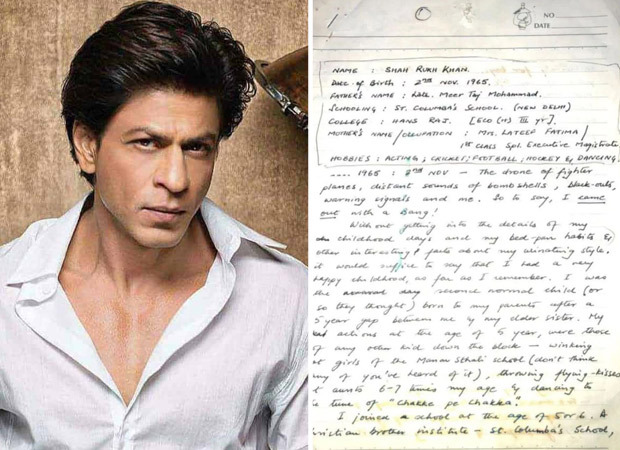 NO
DATE
NAME : SHAH RUKH KHAN.
Date of Birth : 2ND NOV. 1965.
FATHER'S NAME : Late. Meer Taj Mohammad.
SCHOOLING : ST. COLUMBA'S SCHOOL. (NEW DELHI)
COLLEGE : HANS RAJ. [ECO (H) III yr].
MOTHER'S NAME/OCCUPATION : MRS. LATEEF FATIMA/
1st CLASS Spl. Executive Magistrate
HOBBIES : ACTING; CRICKET; FOOTBALL; HOCKEY & DANCING.
.... 1965 : 2ND NOV — The drone of fighter
planes, distant sounds of bombshells, black-outs,
warning signals and me. So to say, I came
out with a Bang!
Without getting into the details of my
childhood days and my bed-pan habits &
other interesting facts about my urinating style.
it would suffice to say that I had a very
happy childhood, as far as I remember. I was
the second normal child (or
so they thought) born to my parents after a
5 year gap between me & my elder sister. My
actions at the age of 5 year, were those
of any other kid down the block — winking
at girls of the Manav Sthali school (don't think
any of you've heard of it), throwing flying-kisses
at aunts 6-7 times my age & dancing to
the tune of "Chakke pe chakka".
I joined a school at the age of 5 or 6. A
Christian brother institute — St. Columba's School,